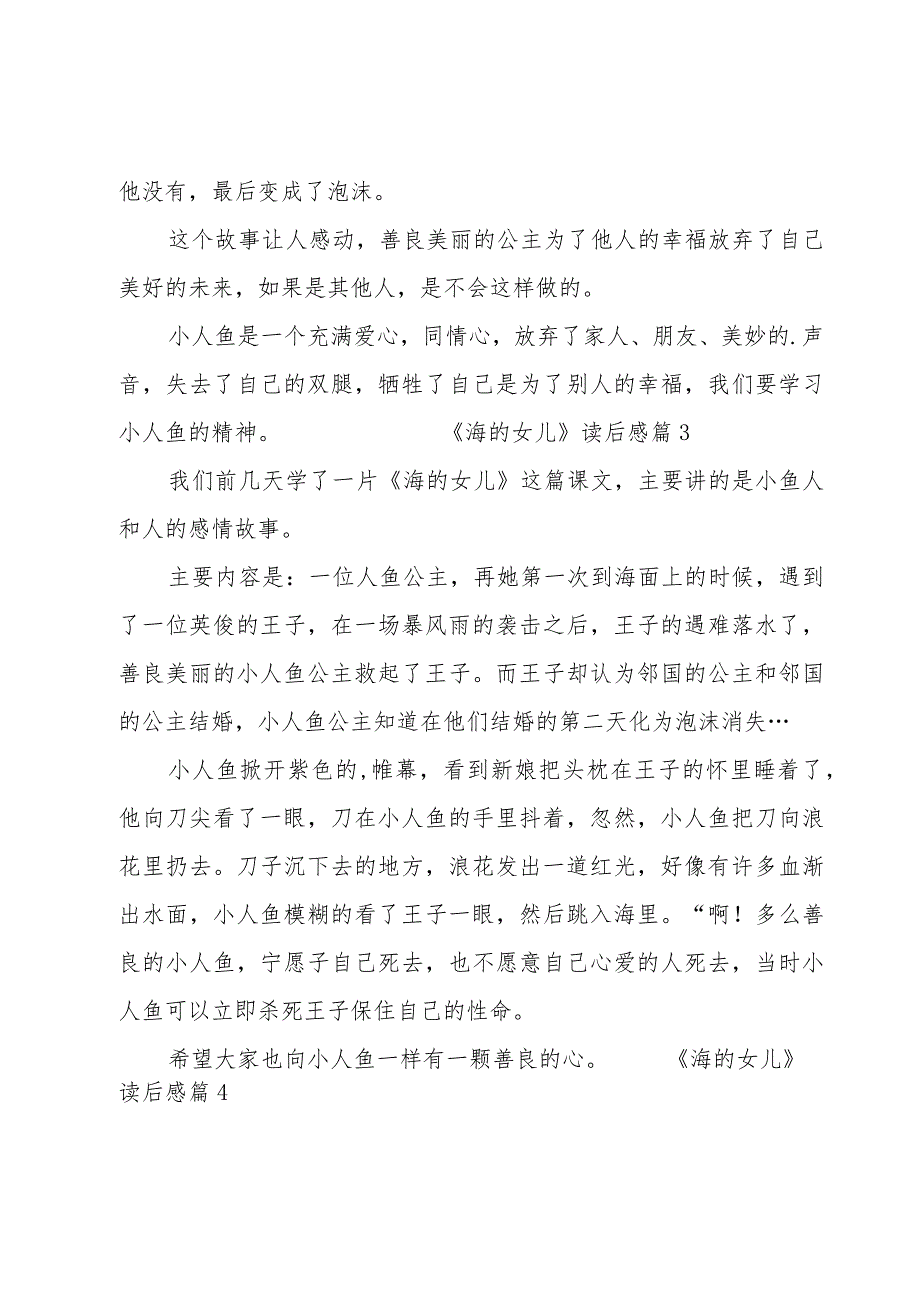 他没有，最后变成了泡沫。
这个故事让人感动，善良美丽的公主为了他人的幸福放弃了自己
美好的未来，如果是其他人，是不会这样做的。
小人鱼是一个充满爱心，同情心，放弃了家人、朋友、美妙的.声
音，失去了自己的双腿，牺牲了自己是为了别人的幸福，我们要学习
小人鱼的精神。 《海的女儿》读后感篇3
我们前几天学了一片《海的女儿》这篇课文，主要讲的是小鱼人
和人的感情故事。
主要内容是：一位人鱼公主，再她第一次到海面上的时候，遇到
了一位英俊的王子，在一场暴风雨的袭击之后，王子的遇难落水了，
善良美丽的小人鱼公主救起了王子。而王子却认为邻国的公主和邻国
的公主结婚，小人鱼公主知道在他们结婚的第二天化为泡沫消失…
小人鱼掀开紫色的,帷幕，看到新娘把头枕在王子的怀里睡着了，
他向刀尖看了一眼，刀在小人鱼的手里抖着，忽然，小人鱼把刀向浪
花里扔去。刀子沉下去的地方，浪花发出一道红光，好像有许多血渐
出水面，小人鱼模糊的看了王子一眼，然后跳入海里。“啊！多么善
良的小人鱼，宁愿子自己死去，也不愿意自己心爱的人死去，当时小
人鱼可以立即杀死王子保住自己的性命。
希望大家也向小人鱼一样有一颗善良的心。 《海的女儿》
读后感篇4